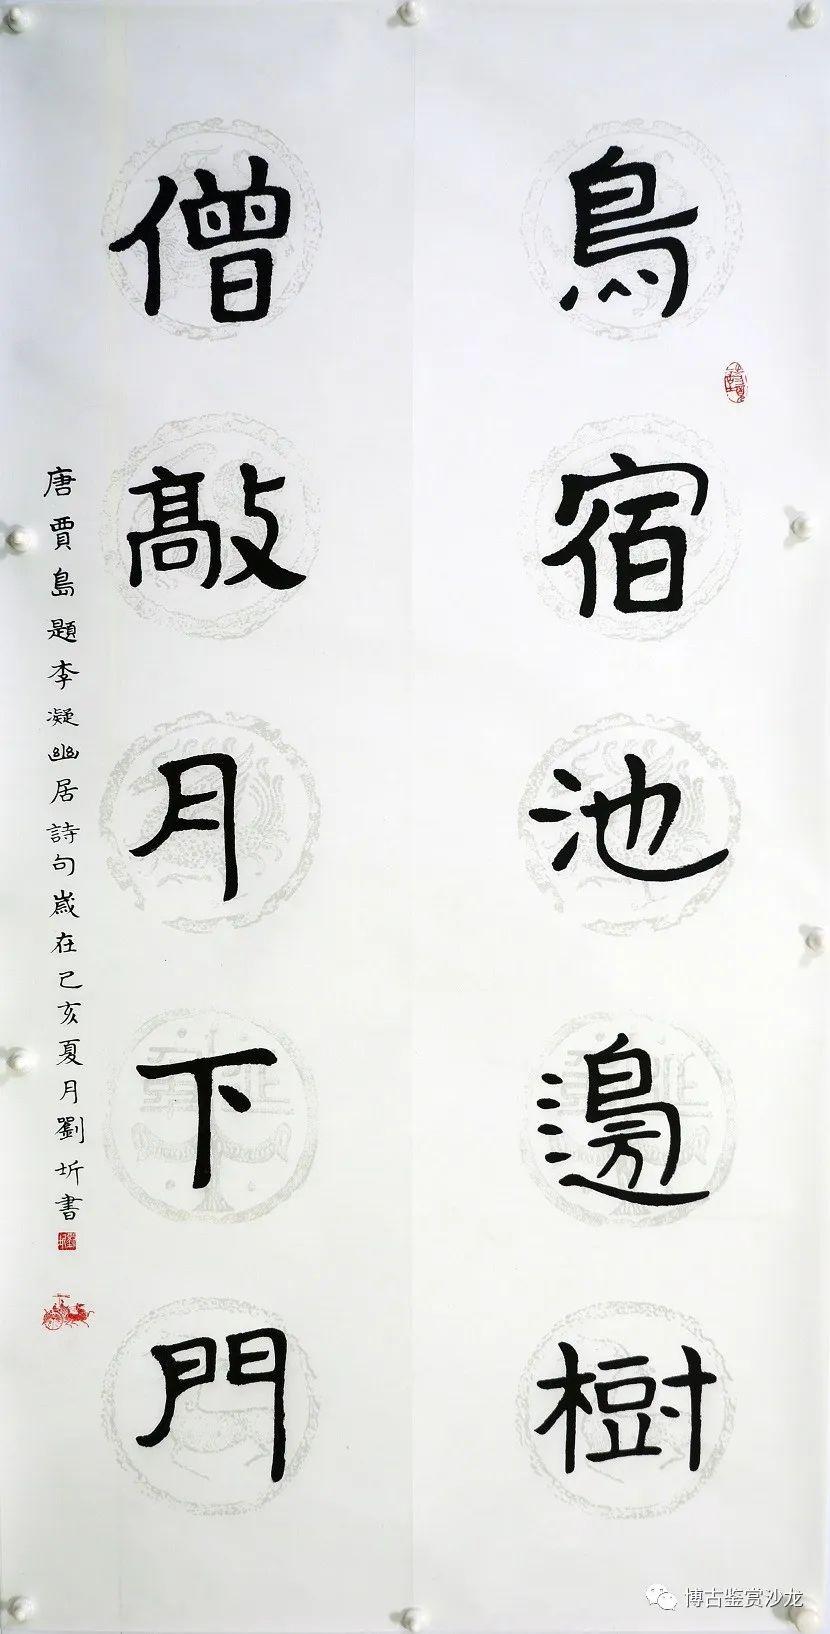 鳥宿池邊樹
僧敲月下門
唐賈島題李凝幽居詩句歲在己亥夏月劉圻書
博古鉴赏沙龙